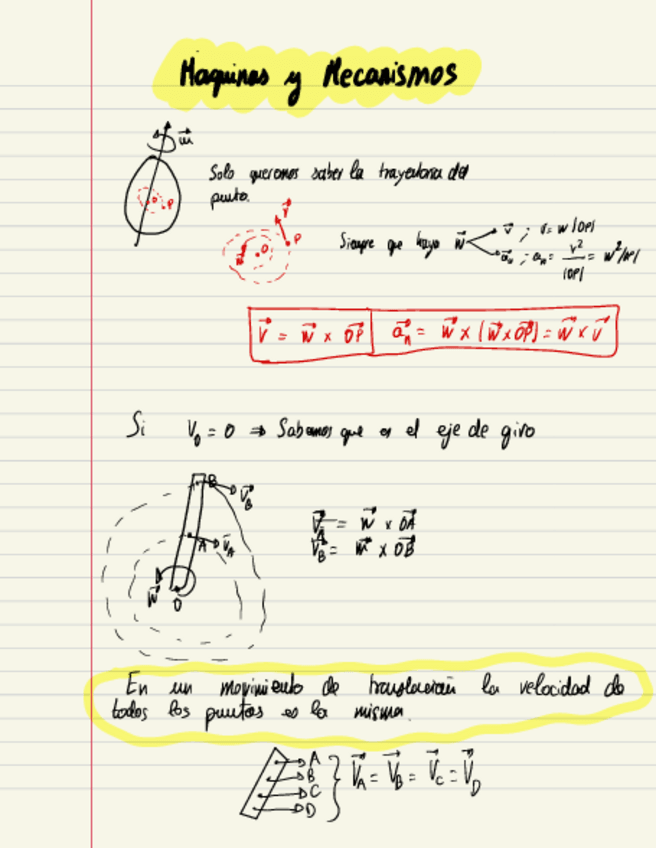 Maquinas y Mecanismos
w⃗
Solo queremos saber la trayectoria del
punto.
O P
v⃗
O P
Siempre que haya w⃗
v⃗ ; v = w|OP|
a⃗n ; an = v²/|OP| = w²|OP|
v⃗ = w⃗ × OP⃗
a⃗n = w⃗ × (w⃗ × OP⃗) = w⃗ × v⃗
Si V₀ = 0 ⇒ Sabemos que es el eje de giro
B V⃗B
A V⃗A
w⃗ O
V⃗A = w⃗ × OA⃗
V⃗B = w⃗ × OB⃗
En un movimiento de translación la velocidad de
todos los puntos es la misma.
A
B
C
D
V⃗A = V⃗B = V⃗C = V⃗D